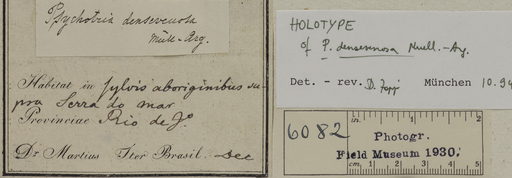 Psychotria densevenosa
Müll-Arg.
Habitat in sylvis aboriginibus su-
pra Serra do mar
Provinciae Rio de Jo
Dr. Martius Iter Brasil. Dec
HOLOTYPE
of P. densevenosa Muell.-Arg.
Det. - rev. D. München 10.94
6082
in. 1 2
Photogr.
Field Museum 1930.
cm. 1 2 3 4 5